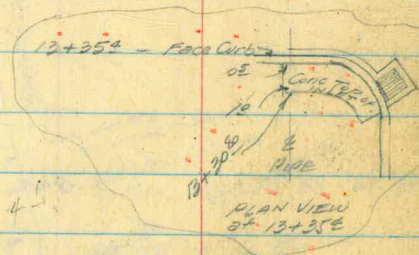 13+35⁴ - Face Curb
0⁵
Conc Top of
INLET
1⁰
13+30⁹⁰
℄
PIPE
4
PLAN VIEW
at 13+35⁴